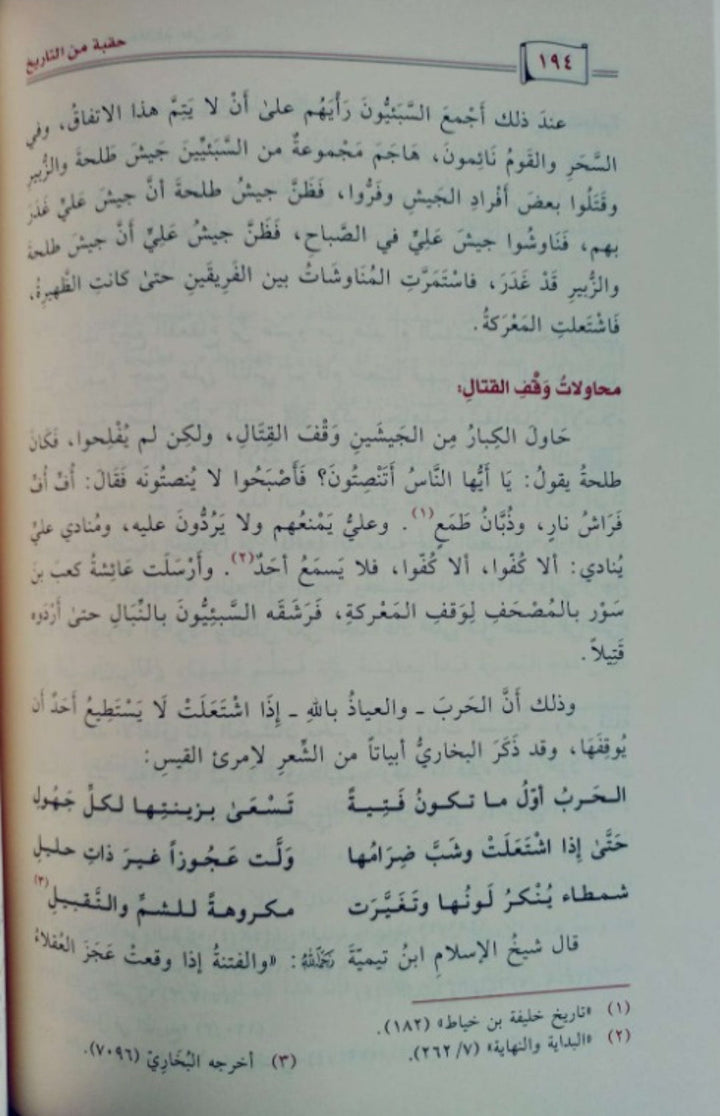 حقبة من التاريخ
١٩٤
عندَ ذلك أَجْمعَ السَّبَئيُّونَ رَأْيَهُم علىٰ أَنْ لا يَتِمَّ هذا الاتفاقُ، وفي
السَّحَرِ والقَومُ نَائِمونَ، هَاجَمَ مَجْموعةٌ من السَّبَئيِّينَ جَيشَ طَلحةَ والزُّبيرِ
وقَتَلُوا بعضَ أَفْرادِ الجَيشِ وفَرُّوا، فَظَنَّ جيشُ طلحةَ أنَّ جيشَ عَليٍّ غَدَرَ
بهم، فَنَاوشُوا جيشَ عَلِيٍّ في الصَّباحِ، فَظَنَّ جيشُ عَلِيٍّ أَنَّ جيشَ طلحةَ
والزُّبيرِ قَدْ غَدَرَ، فاسْتَمَرَّتِ المُنَاوشَاتُ بين الفَرِيقَينِ حتىٰ كانتِ الظَّهيرةُ،
فَاشْتَعلتِ المَعْرَكةُ.
محاولاتُ وَقْفِ القتالِ:
حَاولَ الكِبارُ مِن الجَيشَينِ وَقْفَ القِتَالِ، ولكِن لم يُفْلِحوا، فَكَانَ
طلحةُ يقولُ: يَا أَيُّها النَّاسُ أَتَنْصِتُونَ؟ فَأَصْبَحُوا لا يُنصتُونَه فَقَالَ: أُفٌ أُفٌ
فَرَاشُ نارٍ، وذُبَّانُ طَمَعٍ(١). وعليٌّ يَمْنعُهم ولا يَرُدُّونَ عليه، ومُنادي عليٍّ
يُنادي: ألا كُفّوا، ألا كُفّوا، فلا يَسمَعُ أحَدٌ(٢). وأَرْسَلَت عَائِشةُ كعبَ بنَ
سَوْر بالمُصْحَفِ لِوَقفِ المَعْركةِ، فَرَشَقَه السَّبئِيُّونَ بالنِّبَالِ حتىٰ أَرْدَوه
قَتِيلاً.
وذلك أَنَّ الحَربَ ـ والعياذُ باللهِ ـ إذَا اشْتَعَلَتْ لَا يَسْتَطِيعُ أَحَدٌ أن
يُوقِفَهَا، وقد ذَكَرَ البخاريُّ أبياتاً من الشِّعرِ لاِمرئ القيسِ:
الـحَـربُ أوّلُ مـا تـكـونُ فَـتِـيـةً تَـسْـعَـىٰ بـزيـنـتِـهـا لـكـلِّ جَـهُـولِ
حَتَّىٰ إذا اشْتَعَلَتْ وشَبَّ ضِرَامُها وَلَّـت عَـجُـوزاً غـيـرَ ذاتِ حـلـيـلِ
شـمـطـاء يُـنْـكـرُ لَـونُـهـا وتَـغَـيَّـرَت مـكـروهـةً لـلـشـمِّ والـتَّـقـبـيـلِ(٣)
قال شيخُ الإسلامِ ابنُ تيميّةَ رَحِمَهُ اللهُ: «والفتنةُ إذا وقعتْ عَجَزَ العُقلاءُ
(١) «تاريخ خليفة بن خياط» (١٨٢).
(٢) «البداية والنهاية» (٧/ ٢٦٢).
(٣) أخرجه البُخَارِيّ (٧٠٩٦).